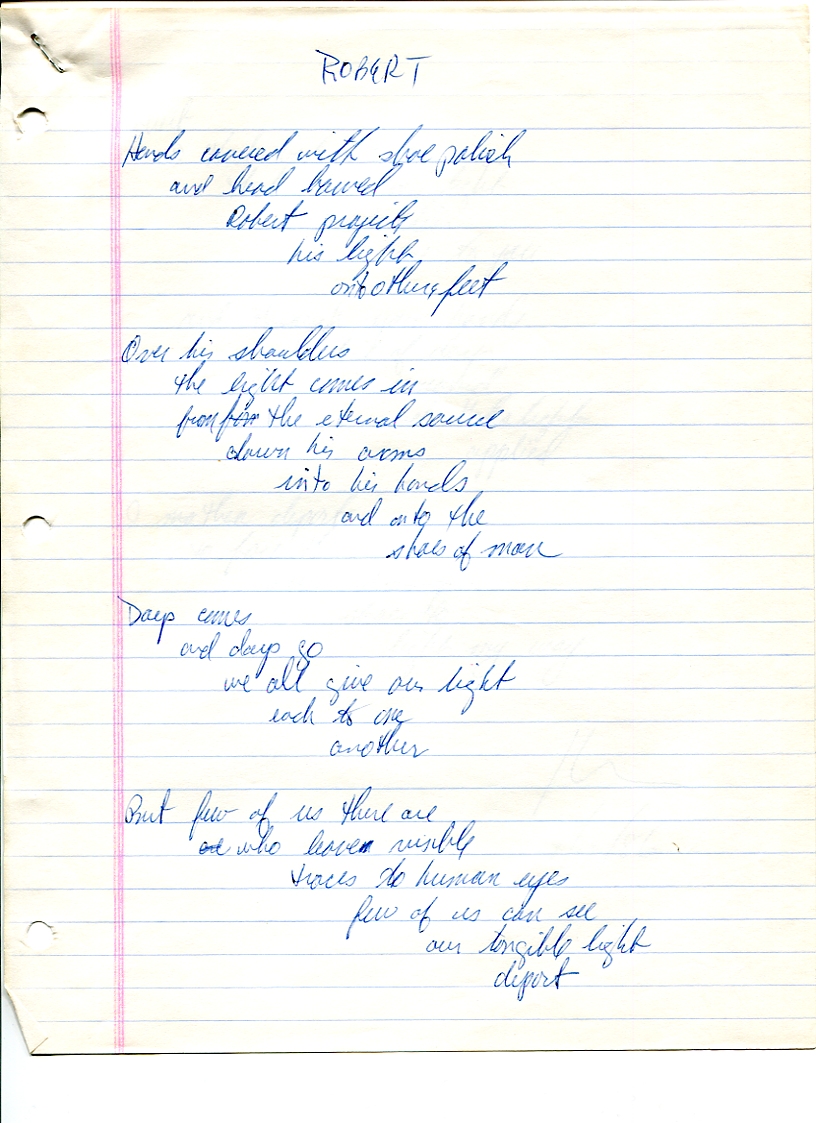 ROBERT
Hands covered with shoe polish
and head bowed
Robert projects
his light
onto others feet
Over his shoulders
the light comes in
from the eternal source
down his arms
into his hands
and onto the
shoes of man
Days comes
and days go
we all give our light
each to one
another
But few of us there are
who leave visible
traces to human eyes
few of us can see
our tangible light
depart